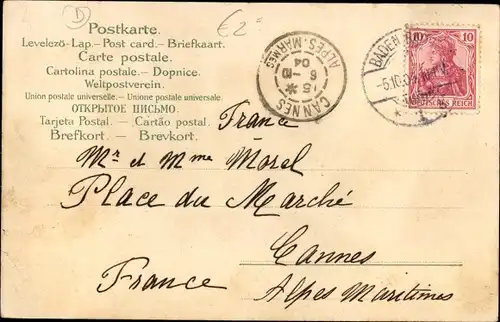 D
€2=
Postkarte.
Levelező-Lap. – Post card. – Briefkaart.
Carte postale.
Cartolina postale. – Dopnice.
Weltpostverein.
Union postale universelle. – Unione postale universale.
ОТКРЫТОЕ ПИСЬМО.
Tarjeta Postal. – Cartão postal.
Brefkort. – Brevkort.
CANNES
ALPES-MARMES
5 * 10
04
BADEN
5.10.
10 10
DEUTSCHES REICH
* 1
France
Mr et Mme Morel
Place du Marché
Cannes
France
Alpes Maritimes